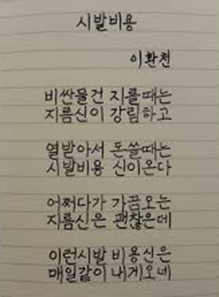 시발비용
이환천
비싼물건 지를때는
지름신이 강림하고
열받아서 돈쓸때는
시발비용 신이온다
어쩌다가 가끔오는
지름신은 괜찮은데
이런시발 비용신은
매일같이 내게오네